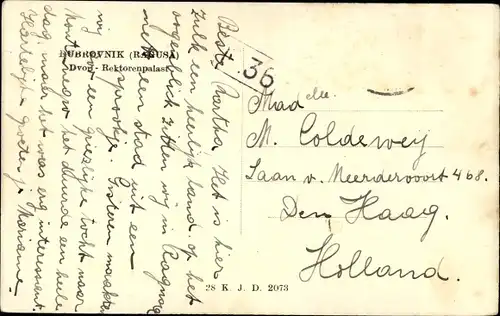 DUBROVNIK (RAGUSA)
Dvor - Rektorenpalast
Beste Martha. Het is hier
zulk een heerlijk land. op het
oogenblik zitten wij in Ragusa
net een stad uit een
sprookje. Gisteren maakten
wij voor een griezelige tocht naar
het duurde een heele
dag, maar het was erg interessant.
Hartelijke groeten je Marianne.
36
Mad elle.
M. Coldewey
Laan v. Meerdervoort 468.
Den Haag.
Holland.
28 K. J. D. 2073